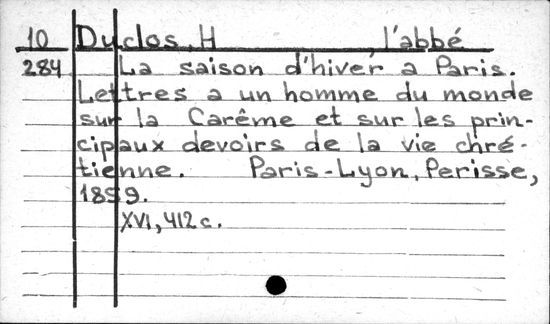 10 Duclos, H , l'abbé
284 La saison d'hiver a Paris.
Lettres a un homme du monde
sur la Carême et sur les prin-
cipaux devoirs de la vie chré-
tienne. Paris-Lyon, Perisse,
1859.
XVI, 412 c.